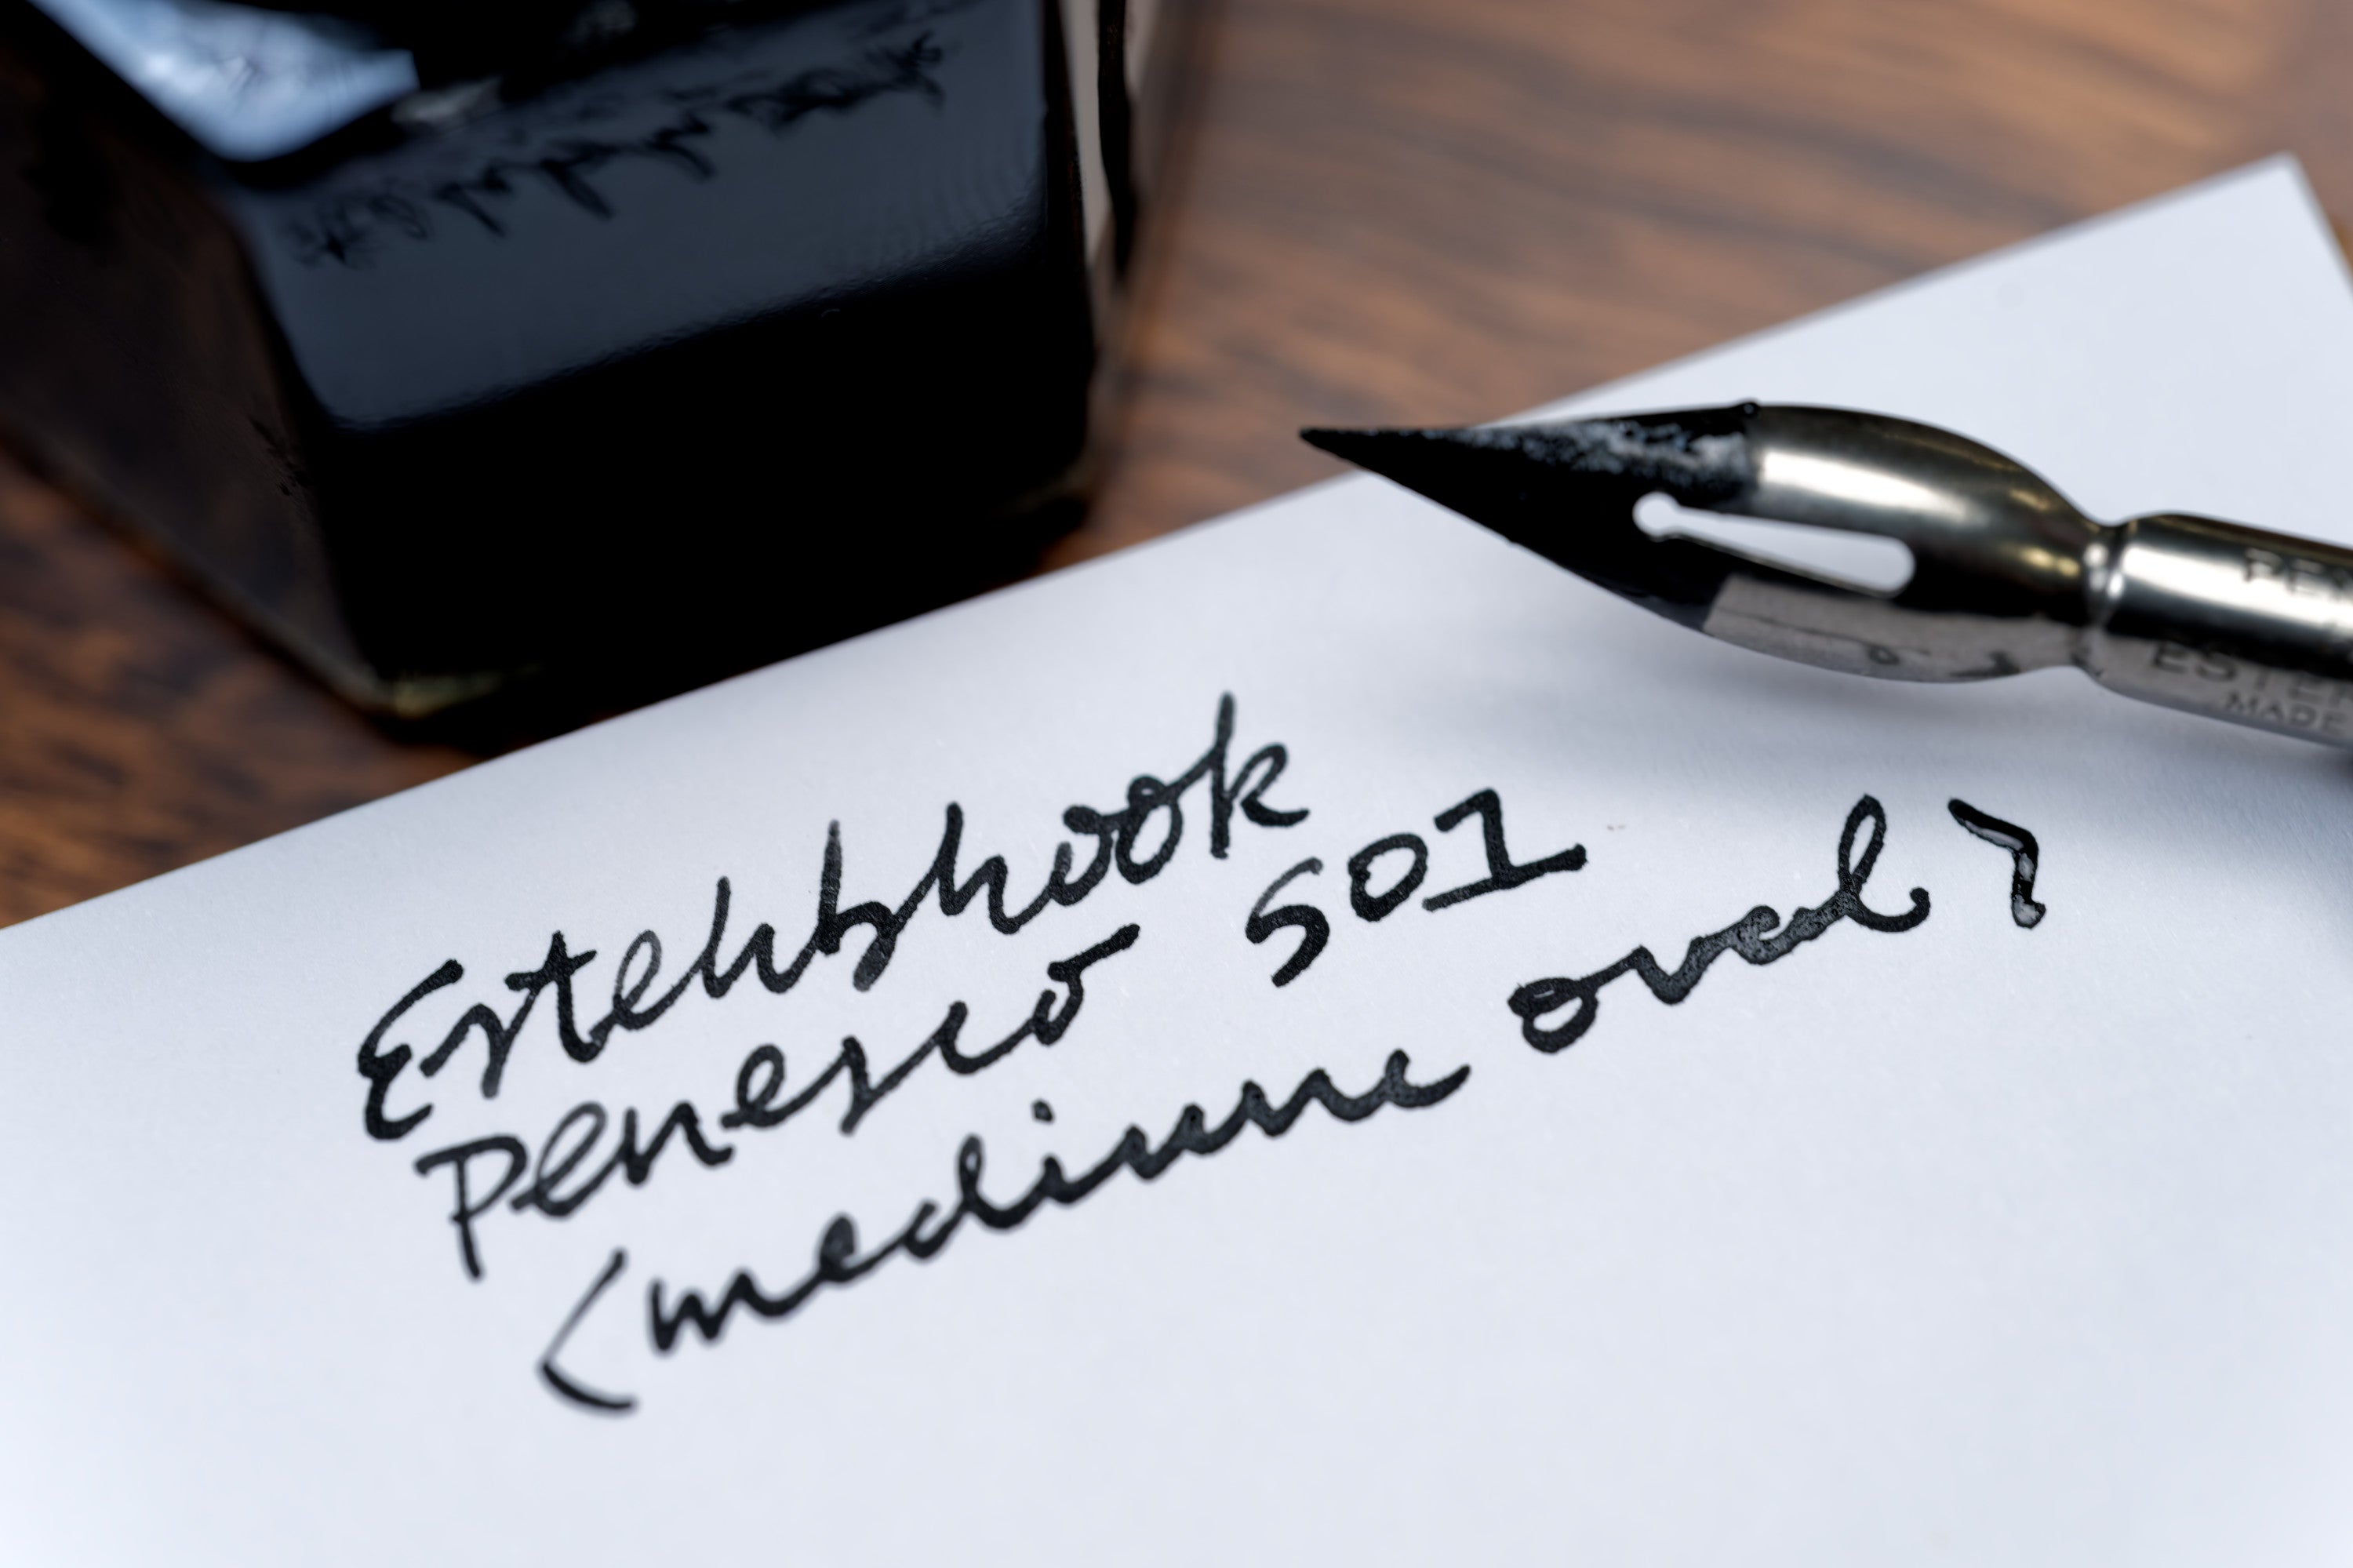 Esterbrook
Penesco 501
(medium oval)
PEN
ESTER
MADE